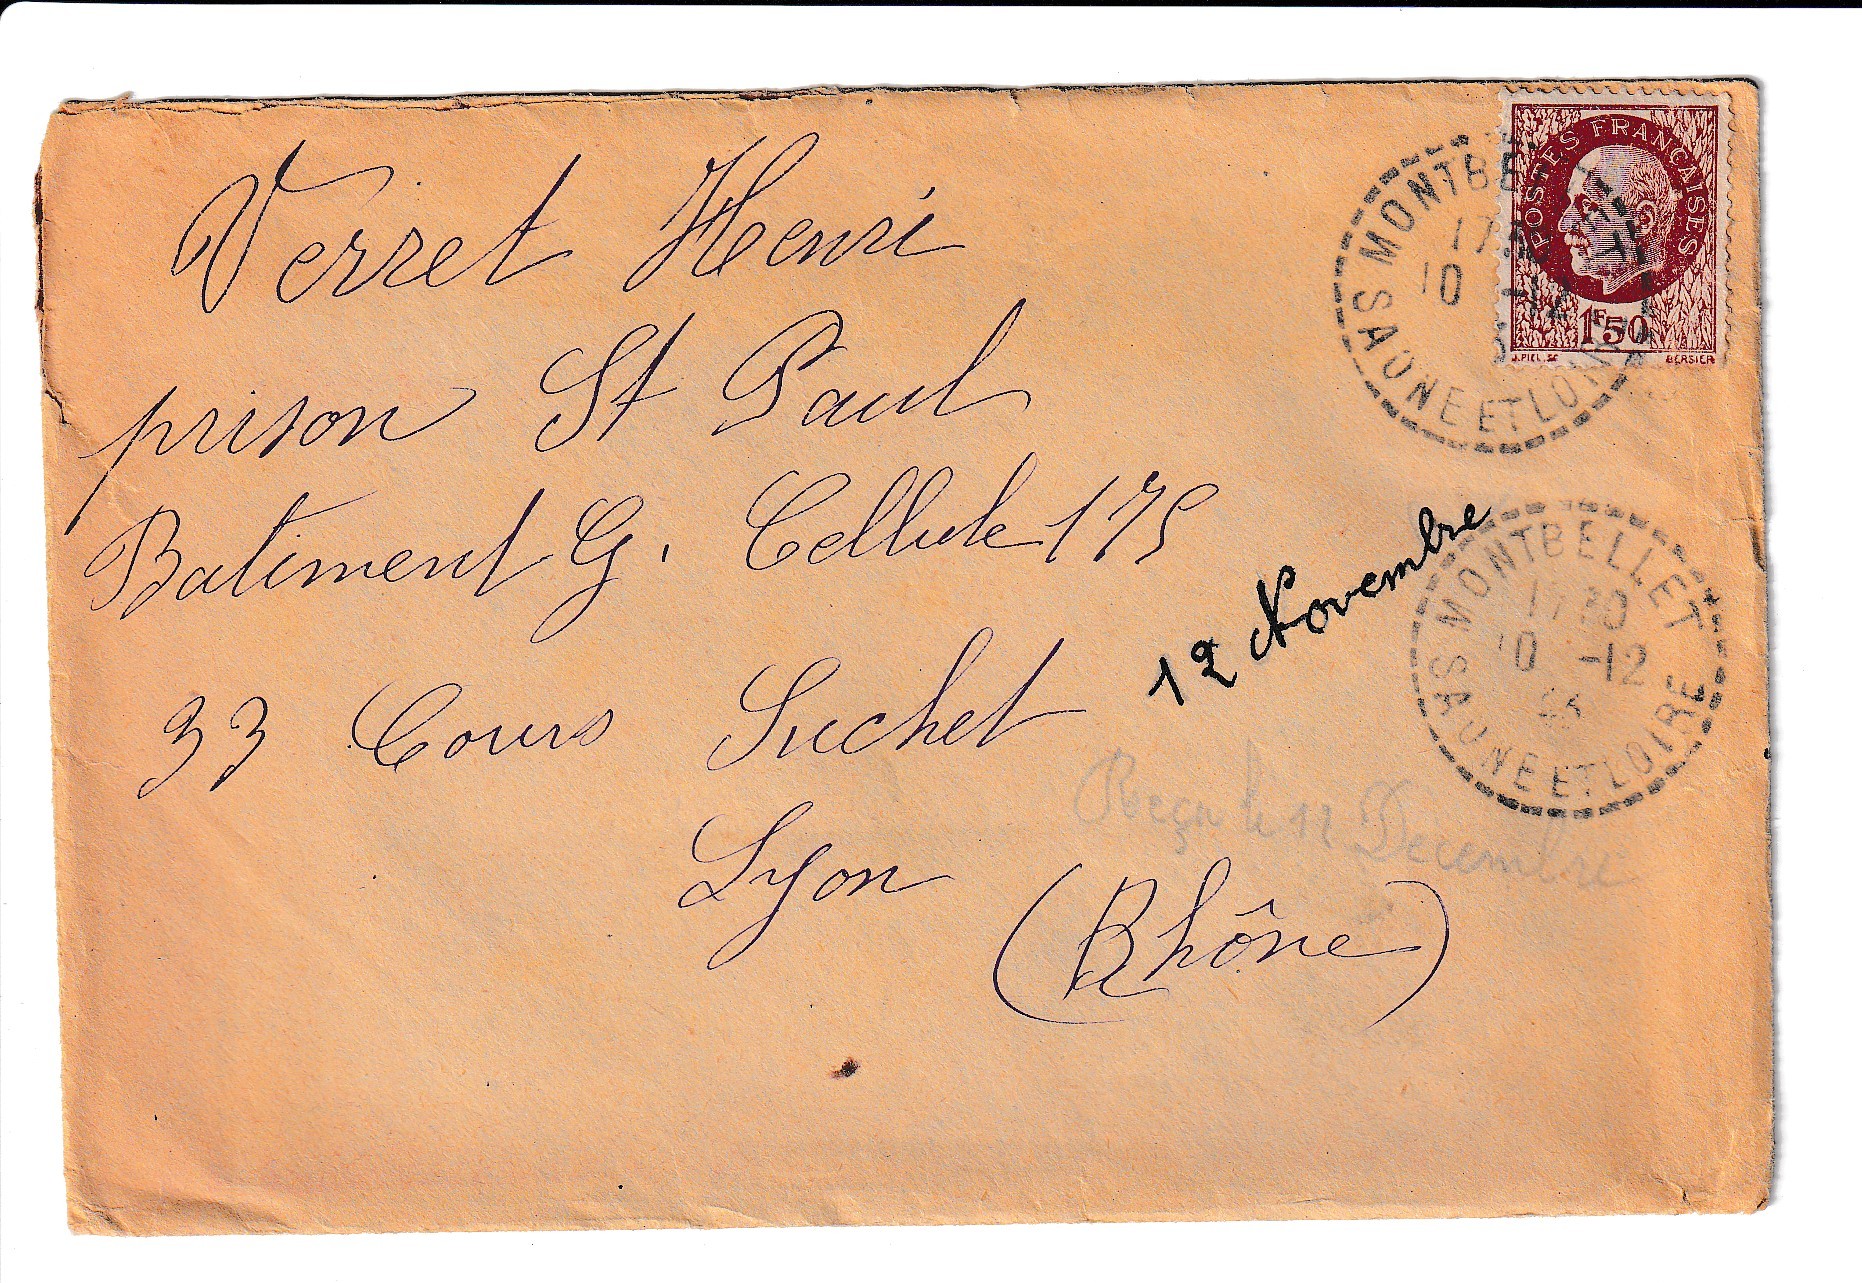 Verret Henri
prison St Paul
Batiment G. Cellule 175
33 Cours Suchet
Lyon
(Rhône)
12 Novembre
Reçu le 12 Decembre
POSTES FRANÇAISES
1F50
J.PIEL.SC BERSIER
MONTBE
17
10 -12
SAONE ET LOI
MONTBELLET
17 30
10 -12
43
SAONE ET LOIRE